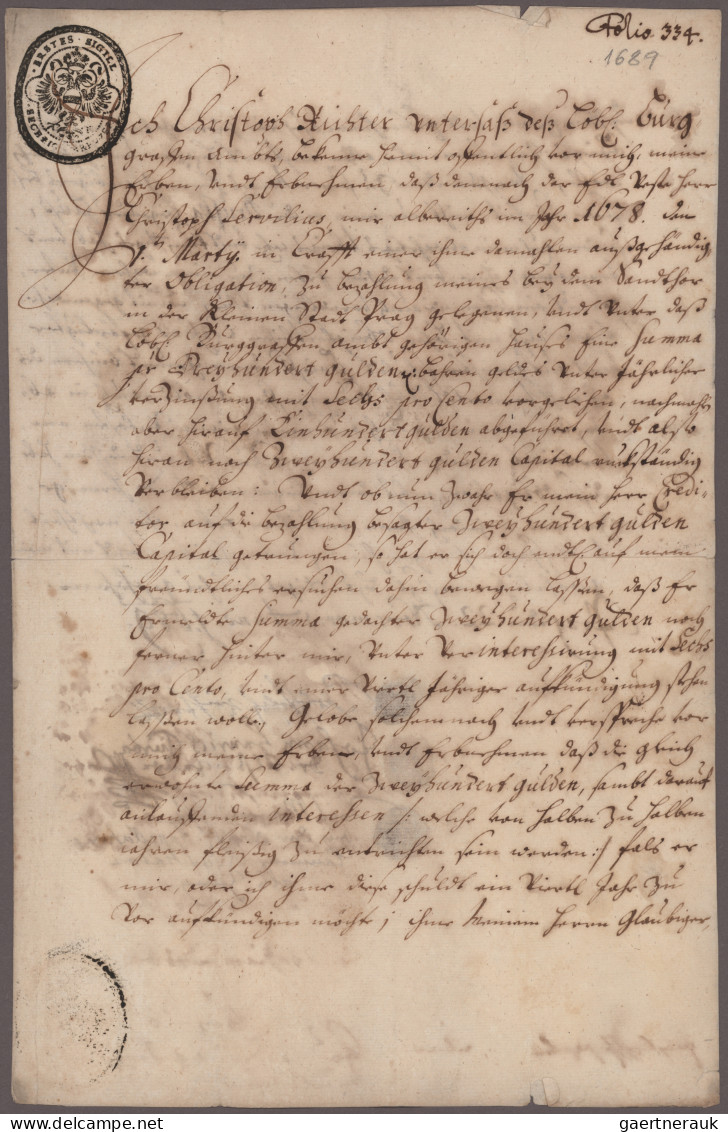 Folio 334.
1689
ERSTES · SIGILL
Ich Christoph Richter unterseß deß Lobl: Burg
graffen Ambts, bekenne hiemit offentlich vor mich, meine
Erben, undt Erbnehmen, daß demnach der Edl Veste Herr
Christoph Servilius, mir albereiths im Jahr 1678. den
Martÿ in Crafft einer ihme damahlen außgehändig
ter Obligation, zu bezahlung meines beÿ dem Sandthor
in der Kleinen Stadt Prag gelegenen, undt unter daß
Lobl: Burggraffen ambt gehörigen Hauses Eine Summa
per Dreÿhundert gulden bahren geldes unter Jährlicher
verzinßung mit Sechs pro Cento vorgeliehen, nachmahls
aber hierauf Einhundert gulden abgeführet, undt also
hieran noch Zweÿhundert gulden Capital ruckständig
verbleiben: Undt ob nun zwahr Er mein Herr Credi-
tor auf die bezahlung besagter Zweÿhundert gulden
Capital getrungen, so hat er sich doch endtl: auf mein
freündtliches ersuchen dahin bewegen lassen, daß Er
Ermeldte Summa gedachter Zweÿhundert gulden noch
ferner hinter mir, unter Verinteressirung mit Sechs
pro Cento, undt einer Viertl Jähriger aufkündigung stehen
lassen wolle, Gelobe solchemnach undt verspreche vor
mich meine Erben, undt Erbnehmen daß die gleich
erwehnte Summa der Zweÿhundert gulden, sambt darauf
anlauffenden interessen /: welche von halben zu halben
iahren fleißig zu entrichten sein werden :/ fals er
mir, oder ich ihme diese schuldt ein Viertl Jahr zu
vor aufkündigen möchte, ihme meinem Herrn Glaubiger,
gaertnerauk